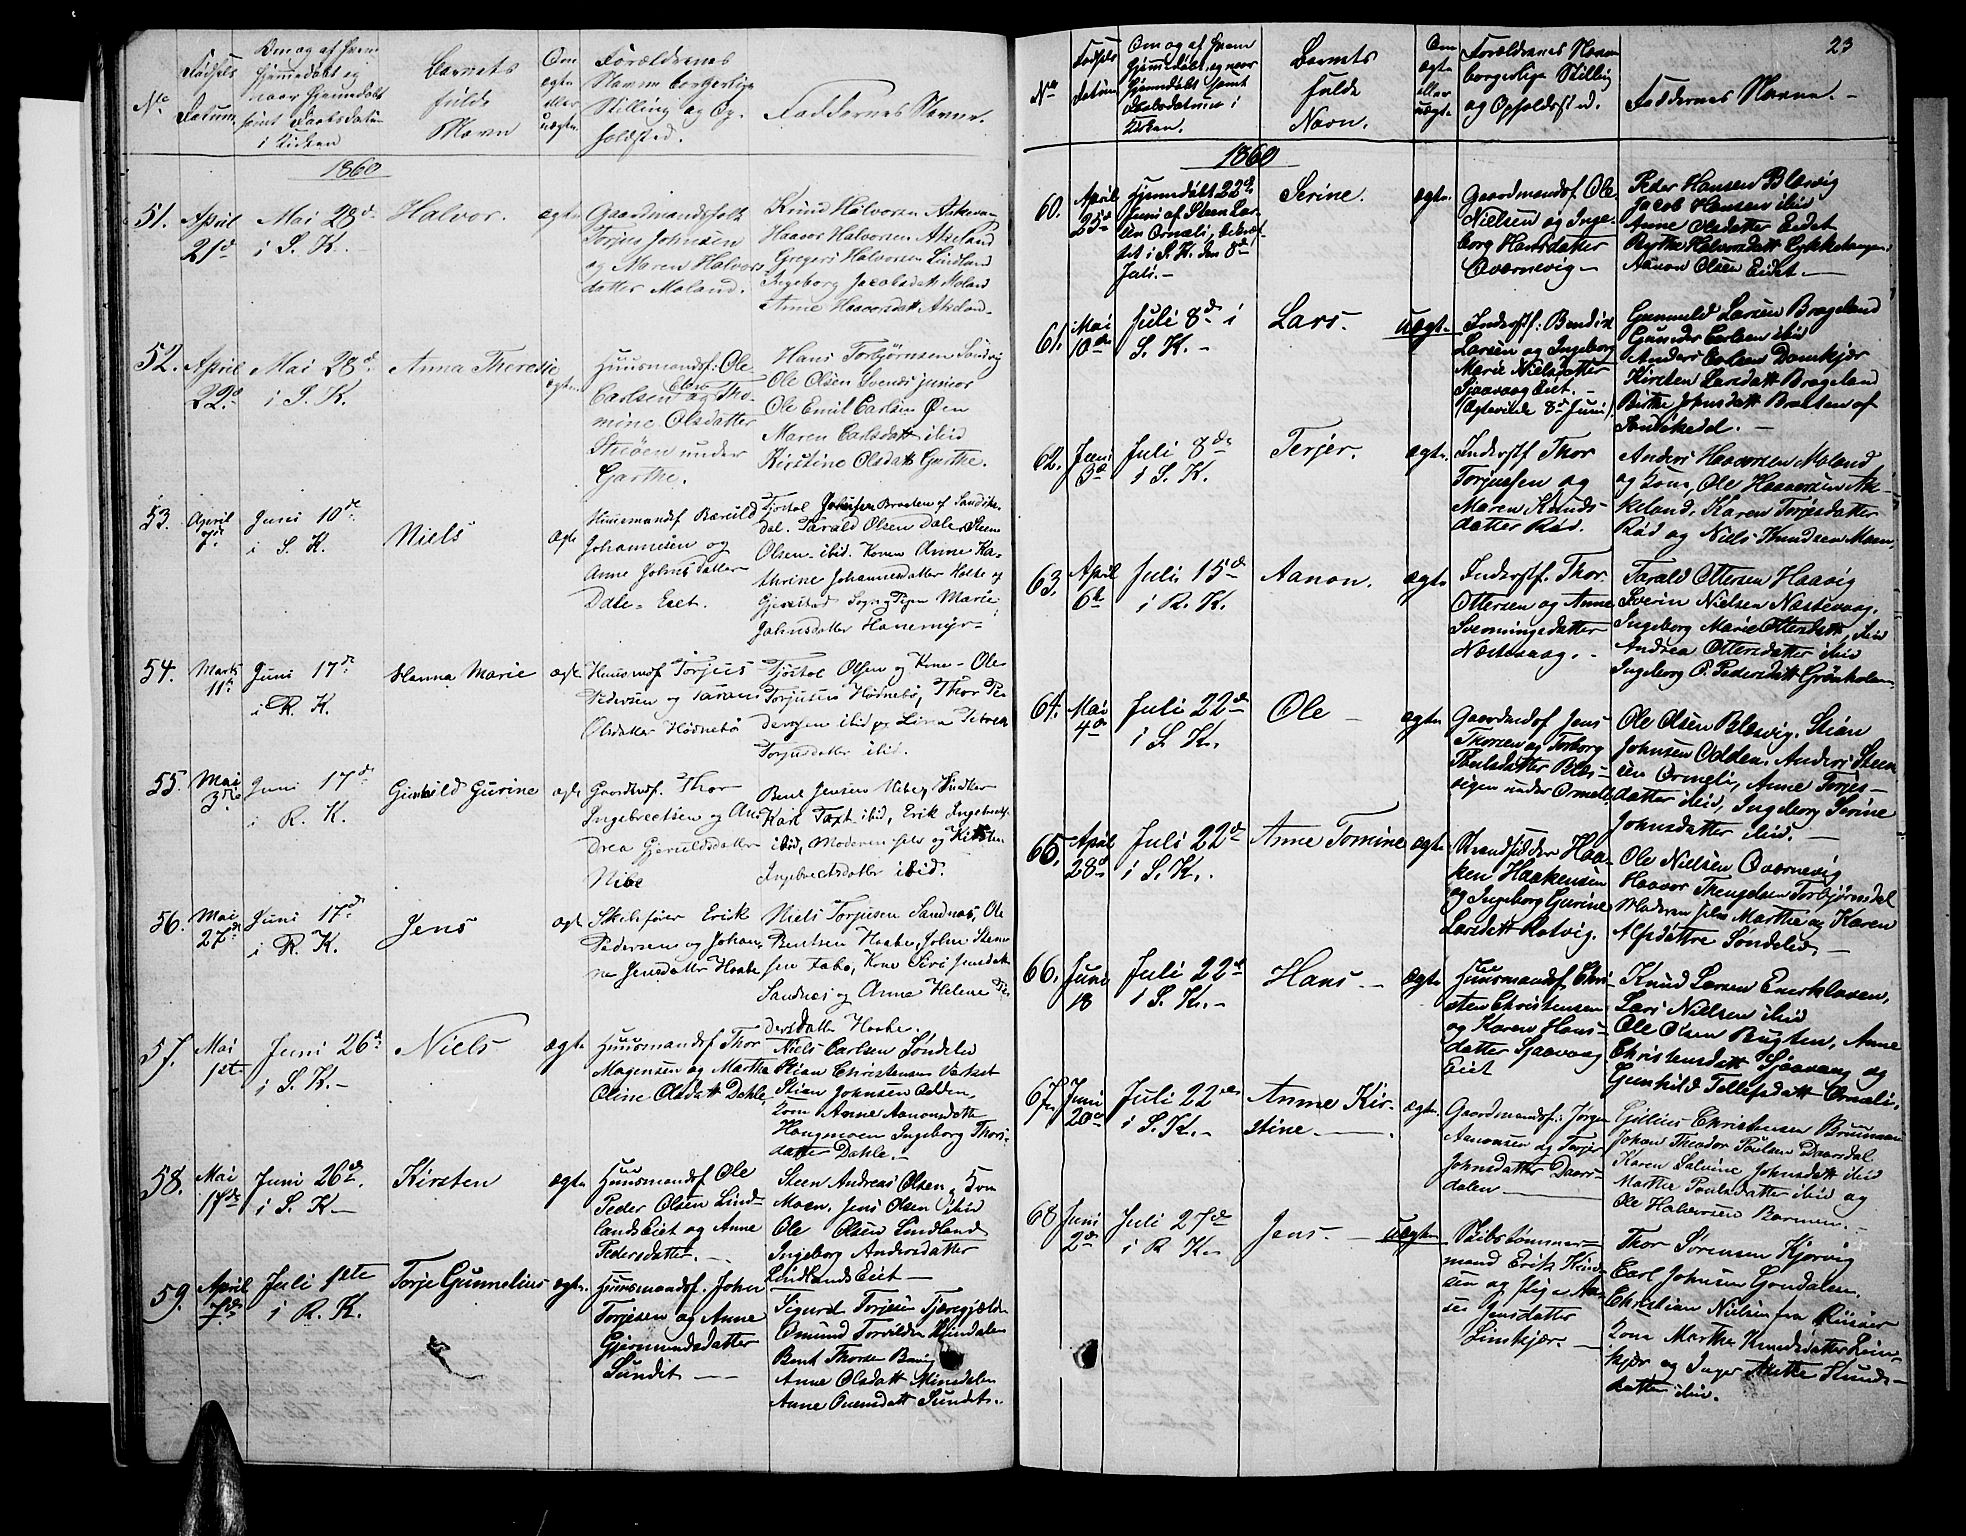 No
Fødsels
Datum
Om og af hvem
hjemmedøbt og
naar hjemmedøbt
samt Daabsdatum
i Kirken
Barnets
fulde
Navn
Om
ægte
eller
uægte
Forældrenes
Navne borgerlige
Stilling og Op-
holdsted.
Faddernes Navne.
1860
51. April
21de
Mai 28de
i S. K.
Halvor.
ægte
Gaardmandsfolk
Torjus Johnsen
og Maren Halvors
datter Moland.
Knud Halvorsen
Haavor Halvorsen Akeland
Gregers Halvorsen Lindland
Ingeborg Jacobsdatt Moland
Anne Haavorsdatt Akeland.
52. April
22de
Mai 28de
i S. K.
Anna Theresie
ægte
Huusmandsf: Ole
Carlsen og Tho-
mine Olsdatter
under
Garthe.
Hans Torbjørnsen Sandvig
Ole Olsen Svenes junior
Ole Emil Carlsen Øen
Maren Carlsdatt ibid
Kirstine Olsdatt Garthe.
53. April
7de
Juni 10de
i S. K.
Niels
ægte
Huusmandsf
Johannesen og
Anne Johnsdatter
Dale-Eiet.
Tjostol Johnsen Braaten af Sandike
dal. Tarald Olsen Dale, Steen
Olsen ibid. Konen Anne Ka-
thrine Johannesdatter Holte og
Gjerestad Sogn og Pigen Marie
Johnsdatter Hanemyr-
54. Marts
11te
Juni 17de
i R. K.
Hanna Marie
ægte
Huusmdf Torjus
Pedersen og Taran
Olsdatter Hødnebø
Tjostol Olsen og Kone- Ole
Torjusen Hødnebø, Thor Pe-
dersen ibid og Lina Petrea
Torjusdatter ibid.
55. Mai
3die
Juni 17de
i R. K.
Gunhild Gurine
ægte
Gaardmdf. Thor
Ingebretsen og An-
drea Gjeruldsdatter
Nibe
Bent Jensen Nibe, Snedker
Karl Taxt ibid, Erik Ingebretsen
ibid, Moderen selv og Kirsten
Ingebretsdatter ibid.
56. Mai
27de
Juni 17de
i R. K.
Jens
ægte
Erik
Pedersen og Johan-
ne Jensdatter Haabe
Niels Torjusen Sandnæs, Ole
Bentsen Haabe, John Steen
sen Fabo, Kone Siri Jensdatt
Sandnæs og Anne Helene Pe-
dersdatter Haabe.
57. Mai
1ste
Juni 26de
i S. K. -
Niels
ægte
Huusmandsf Thor
Mogensen og Marthe
Oline Olsdatt Dahle
Niels Carlsen Søndeled
Stian Christensen
Stian Johnsen Odden,
Kone Anne Aanonsdatt
Haugmoen Ingeborg Thors-
datter Dahle.-
58. Mai
17de
Juni 26de.
i S. K -
Kirsten
ægte
Huusmandsf Ole
Peder Olsen Lind-
landsEiet og Anne
Pedersdatter. -
Steen Andreas Olsen,
Moen, Jens Olsen ibid
Ole Olsen Lindland
Ingeborg Andersdatter
LindlandsEiet-
59. April
7de
Juli 1ste
i R. K.
Torje Gunnelius
ægte
Huusmandsf. John
Torjesen og Anne
Gjermundsdatter
Sundet --
Sigurd Torjesen
Omund
Bent Thorsen
Anne Olsdatt Mindalen
Anne Ouensdatt Sundets.
23
No
Fødsels
Datum
Om og af hvem
hjemmedøbt, og naar
hjemmedøbt samt
Daabsdatum i
Kirken.
Barnets
fulde
Navn.
Om
ægte
eller
uægte.
Forældrenes Navne
borgerlige Stilling
og Opholdssted.
Faddernes Navne. -
1860
60. April
25de
Hjemmedøbt 22de
Juni af Steen Lar-
sen Ormeli, bekræf-
tet i S. K. den 8de
Juli. -
Serine.
ægte.
Gaardmandsf. Ole
Nielsen og Inge-
borg Hansdatter
Oværnevig-
Peder Hansen Blævig
Jacob Hansen ibid
Anne Olsdatter Eidet
Birthe Halvorsdatt Lykkehaugen
Aanon Olsen Eidet. -
61. Mai
10de
Juli 8de i
S. K. -
Lars.
uægte.
Inderstf: Bendix
Larsen og Ingeborg
Marie Nielsdatter
Sjaavaag Eiet. -
(Ægteviede 8de Juni)
Gunnuld Larsen Brageland
Gunder Carlsen ibid
Anders Carlsen Domkjær
Kirsten Larsdatt Brageland
Birthe Johnsdatt Braaten af
Sandøkedal. -
62. Juni
3de
Juli 8de
i S. K.
Terjer.
ægte.
Inderstf Thor
Torjussen og
Maren Knuds-
datter Rød.
Anders Haavorsen Moland
og Kone, Ole Haavorsen Ak-
keland, Karen Torjesdatter
Rød og Niels Knudsen Moen.
63. April
6te
Juli 15de
i R. K.
Aanon.
ægte
Inderstf. Thor
Ottersen og Anne
Svenningsdatter
Næstevaag. -
Tarald Ottersen Haavig
Sverin Nielsen Næstevaag.
Ingeborg Marie Ottersdatt, ibid
Andrea Ottersdatter ibid
Ingeborg P. Pedersdatt Grønholm
64. Mai
4de
Juli 22de
i S. K.
Ole -
ægte
Gaardmdsf Jens
Thorsen og Torborg
Poulsdatter Blæ-
vigen under Ormeli
Ole Olsen Blævig, Stian
Johnsen Odden, Anders Steen
sen Ormeli, Anne Torjes-
datter ibid, Ingeborg Serine
Johnsdatter ibid. -
65. April
28de
Juli 22de
i S. K.
Anne Tomine
ægte
Strandsidder Haa-
ken Haakensen
og Ingeborg Gurine
Larsdatt Rotvig.
Ole Nielsen Oværnevig
Haavor Thengelsen Torbjørnsdal
Moderen selv Marthe og Karen
Alfsdøttre Søndeled -
66. Juni
18
Juli 22de
i S. K. -
Hans. -
ægte
Huusmandsf Chri-
sten Christensen
og Karen Hans-
datter Sjaavaag
Eiet
Knud Larsen Enerklaven,
Lars Nielsen ibid
Ole Olsen Bugten, Anne
Christensdatt Sjaavaag og
Gunhild Tellefsdatt Ormeli.
67. Juni
20de
Juli 22de
i S. K. -
Anne Kir-
stine -
ægte.
Gaardmandsf: Jørgen
Aanonsen og Torjer
Johnsdatter Daars-
dalen -
Gillius Christensen
Johan Theodor Poulsen Daarsdal
Karen Salvine Johnsdatt ibid
Marthe Poulsdatter ibid og
Ole Halvorsen Barmen. -
68 Juni
2de
Juli 27de
i R K.
Jens. -
uægte
Skibstømmer-
mand Erik Knud-
sen og Pige
Jensdatter
Limkjær. -
Thor Sørensen Kjørvig
Carl Johnsen
Christian Nielsen fra Riisøer
Kone Marthe Knudsdatter Lim-
kjær og Inger Mathe Knuds-
datter ibid.